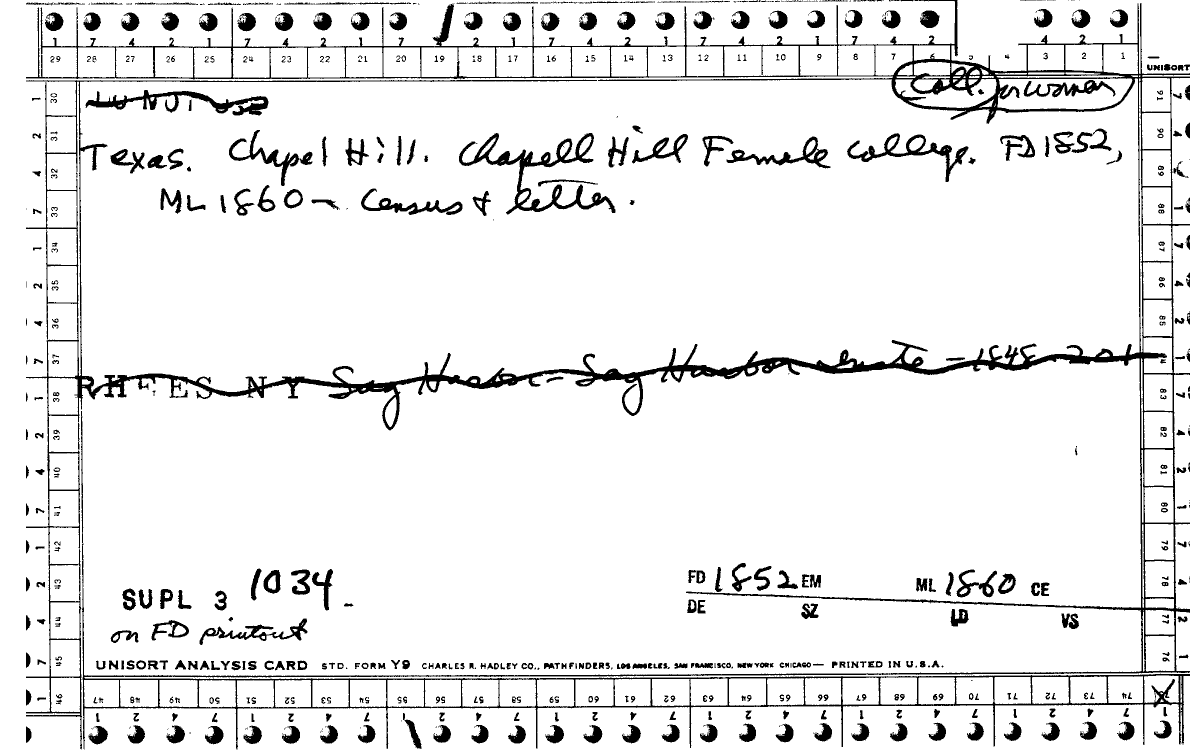 7 4 2 1 7 4 2 1 7 2 1 7 4 2 1 7 4 2 1 7 4 2 4 2 1
29 28 27 26 25 24 23 22 21 20 19 18 17 16 15 14 13 12 11 10 9 8 7 6 5 4 3 2 1
UNISORT
Coll. for women
DO NOT USE
Texas. Chapel Hill. Chapell Hill Female College. FD 1852,
ML 1860 - Census & letter.
RHEES NY Sag Harbor - Sag Harbor Inste - 1848 - 201
1034
SUPL 3
on FD printout
FD 1852 EM ML 1860 CE
DE SZ LD VS
UNISORT ANALYSIS CARD STD. FORM Y9 CHARLES R. HADLEY CO., PATHFINDERS, LOS ANGELES, SAN FRANCISCO, NEW YORK CHICAGO — PRINTED IN U.S.A.
47 48 49 50 51 52 53 54 55 56 57 58 59 60 61 62 63 64 65 66 67 68 69 70 71 72 73 74
1 2 4 7 1 2 4 7 1 2 4 7 1 2 4 7 1 2 4 7 1 2 4 7 1 2 4 7